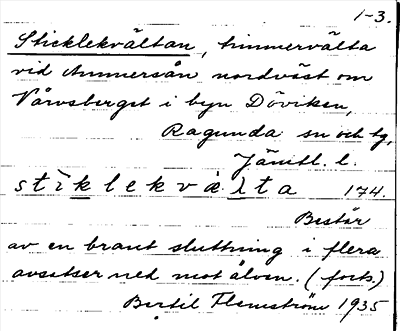 1-3.
Sticklekvältan, timmervälta
vid Ammersån nordväst om
Vårvsberget i byn Döviken,
Ragunda sn och tg,
Jämtl. l.
stiklekvælta 174.
Består
av en brant sluttning i flera
avsatser ned mot älven. (forts.)
Bertil Flemström 1935